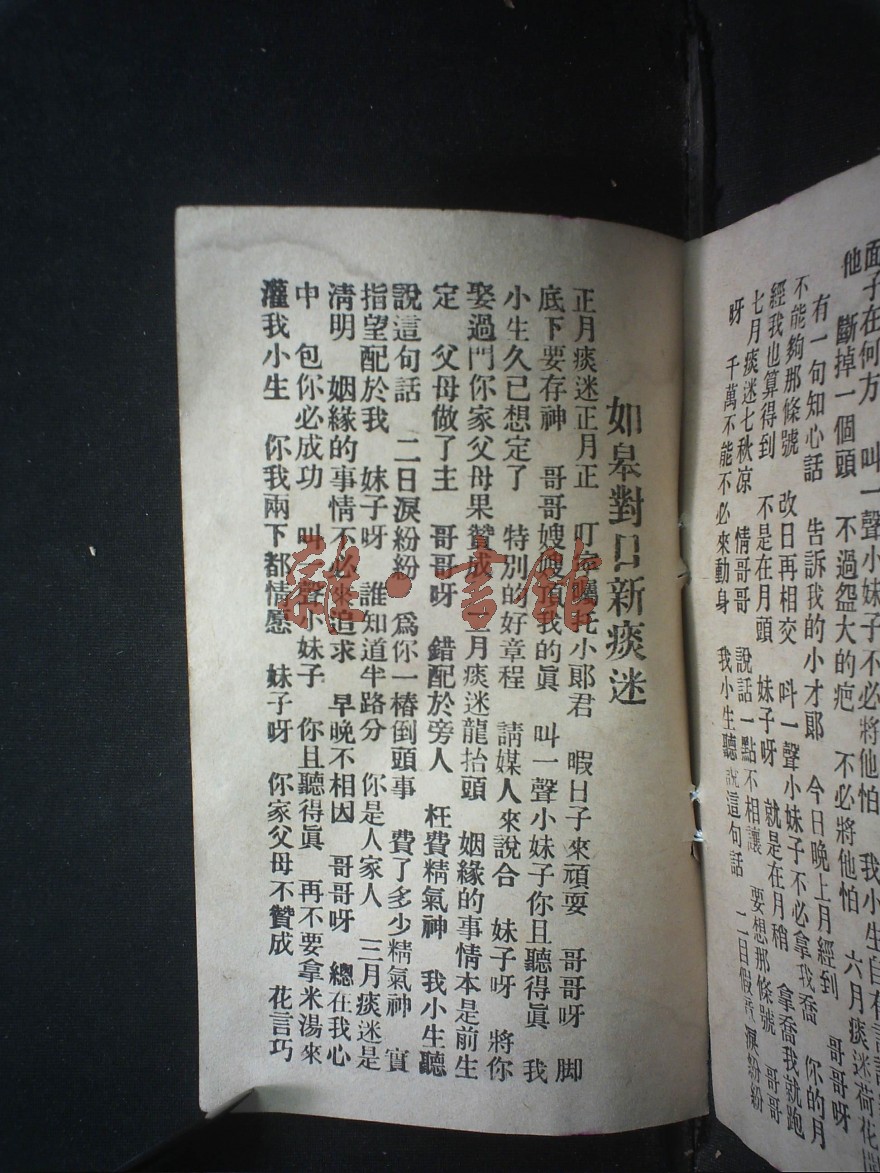 面子在何方　叫一聲小妹子不必將他怕　我小生自有言語
他　斷掉一個頭　不過盌大的疤　不必將他怕　六月痰迷荷花
有一句知心話　告訴我的小才郎　今日晚上月經到　哥哥呀
不能夠那條號　改日再相交　呌一聲小妹子不必拿我喬　你的月
經我也算得到　不是在月頭　就是在月稍　拿喬我就跑
七月痰迷七秋凉　情哥哥說話一點不相讓　要想那條號　哥哥
呀　千萬不能不必來動身　我小生聽說這句話　二目假意淚紛紛
如皋對口新痰迷
正月痰迷正月正　叮嚀囑托小郎君　暇日子來頑耍　哥哥呀　脚
底下要存神　哥哥嫂嫂頂我的眞　叫一聲小妹子你且聽得眞　我
小生久已想定了　特別的好章程　請媒人來說合　妹子呀　將你
娶過門你家父母果贊成　二月痰迷龍抬頭　姻緣的事情本是前生
定　父母做了主　哥哥呀　錯配於旁人　枉費精氣神　我小生聽
說這句話　二日淚紛紛　爲你一樁倒頭事　費了多少精氣神　實
指望配於我　妹子呀　誰知道半路分　你是人家人　三月痰迷是
淸明　姻緣的事情不必來追求　早晚不相因　哥哥呀　總在我心
中　包你必成功　叫一聲小妹子　你且聽得眞　再不要拿米湯來
灌我小生　你我兩下都情愿　妹子呀　你家父母不贊成　花言巧
雜·書館